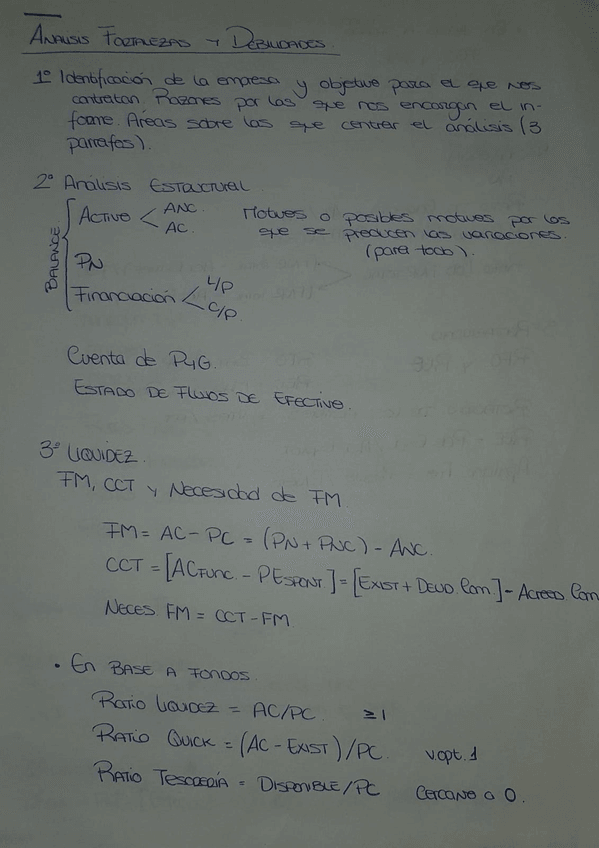 ANALISIS FORTALEZAS Y DEBILIDADES.
1º Identificación de la empresa y objetivo para el que nos
contratan. Razones por las que nos encargan el in-
forme. Áreas sobre las que centrar el análisis (3
parrafos).
2º Análisis ESTRUCTURAL
BALANCE
ACTIVO < ANC.
AC.
Motivos o posibles motivos por los
que se producen las variaciones.
(para todo).
PN
Financiación < L/P
C/P
Cuenta de PyG.
ESTADO DE FLUJOS DE EFECTIVO.
3º LIQUIDEZ.
FM, CCT y Necesidad de FM
FM = AC - PC = (PN + PNC) - ANC.
CCT = [ACFUNC. - PESPONT.] = [EXIST + DEUD. Com.] - ACREED Com
NECES. FM = CCT - FM
• En BASE A FONDOS.
Ratio LIQUIDEZ = AC/PC ≥ 1
RATIO QUICK = (AC - EXIST)/PC. v.opt. 1
RATIO TESORERÍA = DISPONIBLE/PC CERCANO a 0.